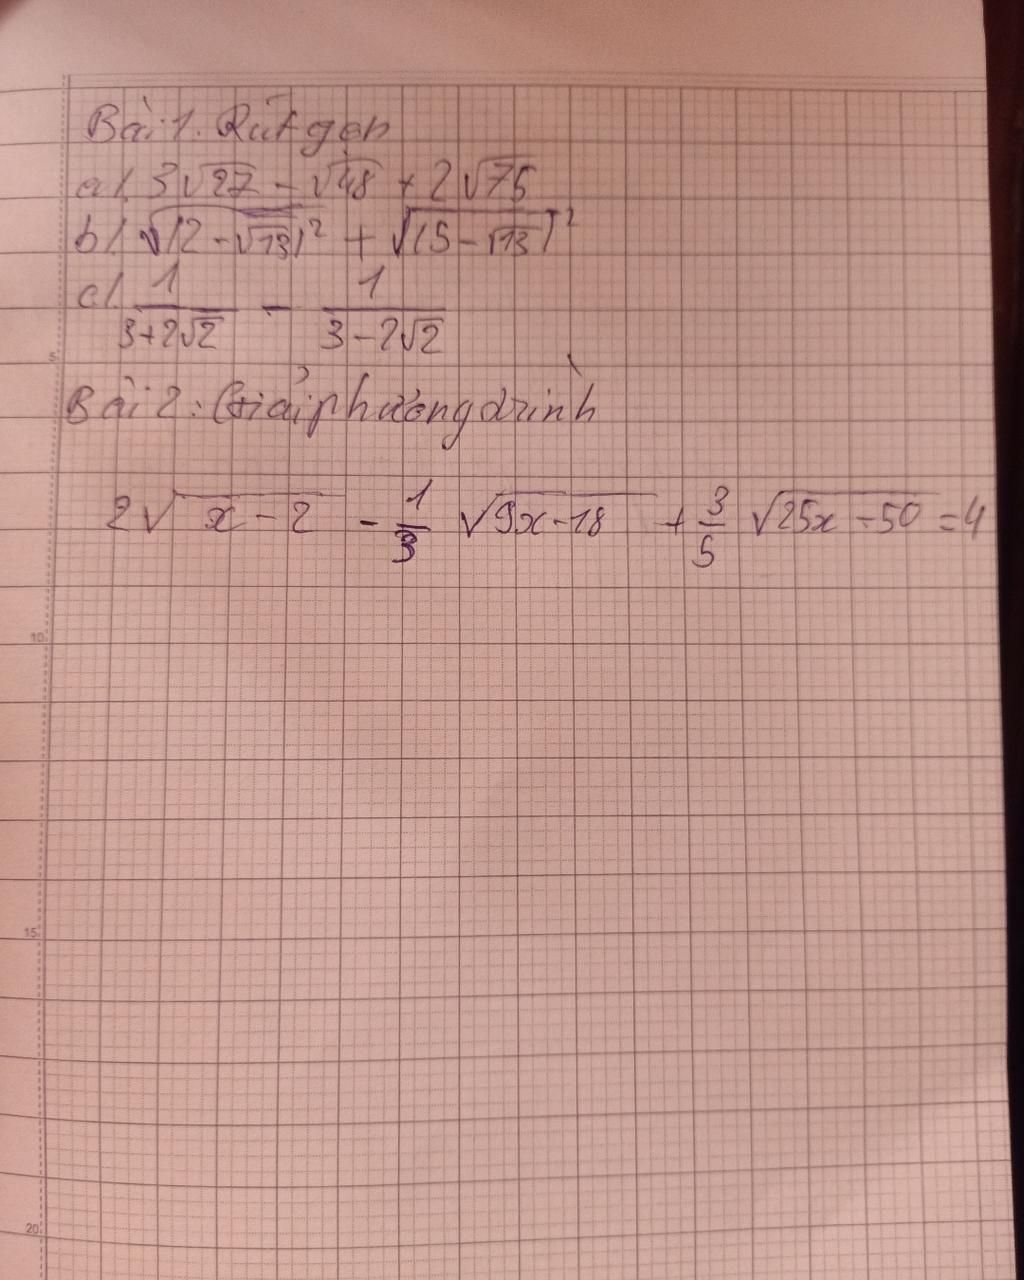 Bài 1. Rút gọn
a/. 3√27 - √48 + 2√75
b/. √(2-√13)² + √(5-√13)²
c/. 1/(3+2√2) - 1/(3-2√2)
5
Bài 2: Giải phương drình
2√(x-2) - 1/3 √(9x-18) + 3/5 √(25x-50) = 4
10
15
20